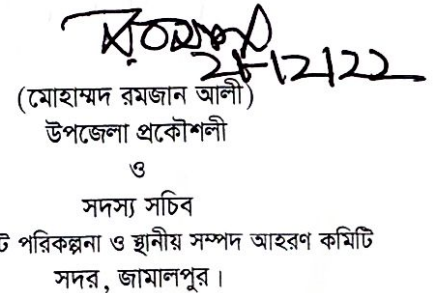 21-12-22
(মোহাম্মদ রমজান আলী)
উপজেলা প্রকৌশলী
ও
সদস্য সচিব
পরিকল্পনা ও স্থানীয় সম্পদ আহরণ কমিটি
সদর, জামালপুর।